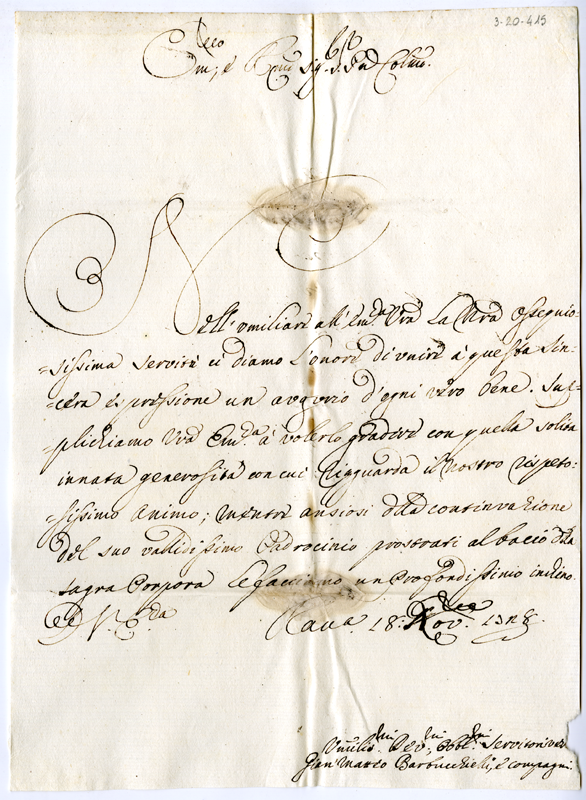 3-20-415
Em.mo, e R.mo Sig.r Sig.r P.ne Col.mo
Nell' umiliare all' Em.a Vrã La Nrã osseguio-
=sissima servitù ci diamo L'onore di unire à questa sin-
=cera espressione un augurio d'ogni vero bene. Sup-
plichiamo Vrã Em.za à volerlo gradire con quella solita
innata generosità con cui riguarda il nostro rispeto-
=sissimo animo; mentre ansiosi della continuazione
del suo vallidissimo Padrocinio prostrati al baccio della
sagra Porpora le facciamo un Profondissimo inchino
Di V. Em.za
18:
1728
Umilis.mi Dev.mi, Obbl.mi Servitori veri
Gian Marco Barbucchielli, e compagni.